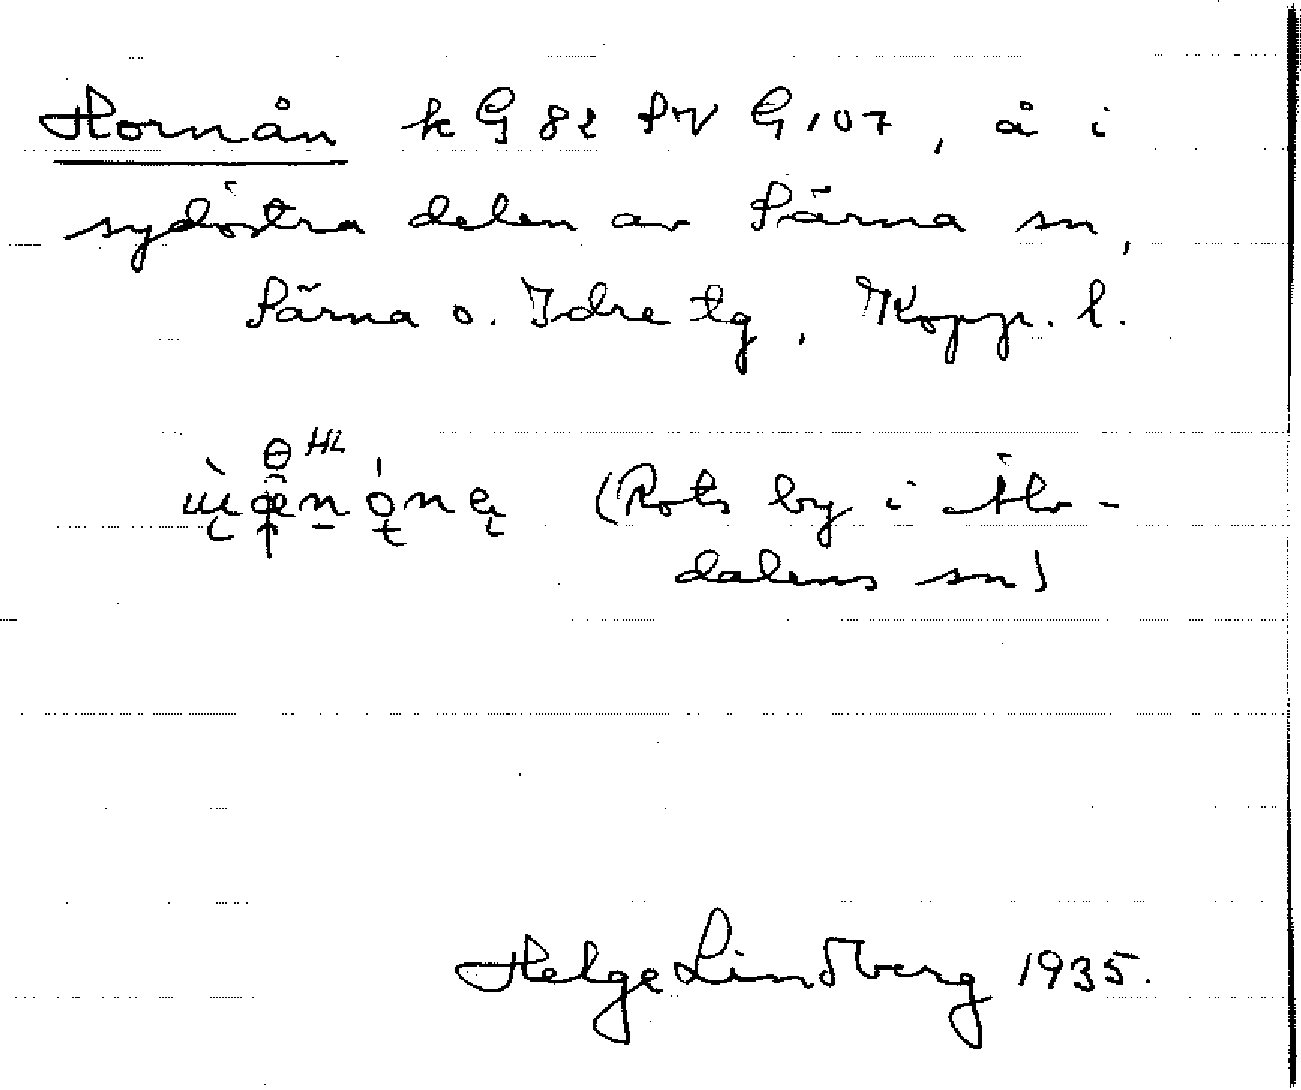 Hornån k G 82 SV G 107, å i
sydöstra delen av Särna sn,
Särna o. Idre tg, Kopp. l.
HL
(Rots by i Älv-
dalens sn)
Helge Lindberg 1935.